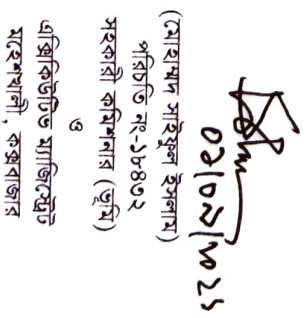 ০১/০১/২০২১
(মোহাম্মদ সাইফুল ইসলাম)
পরিচিতি নং-১৮৪৩২
সহকারী কমিশনার (ভূমি)
ও
এক্সিকিউটিভ ম্যাজিস্ট্রেট
মহেশখালী, কক্সবাজার